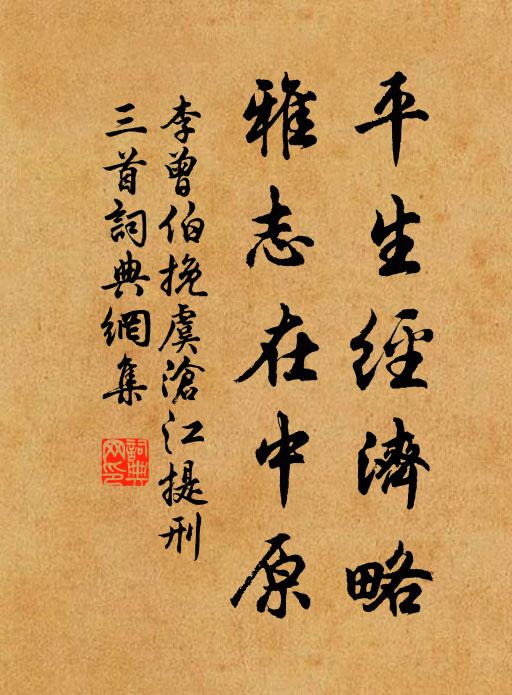 平生經濟略
雅志在中原
李曾伯挽虞滄江提刑
三首詞典網集
詞典網印